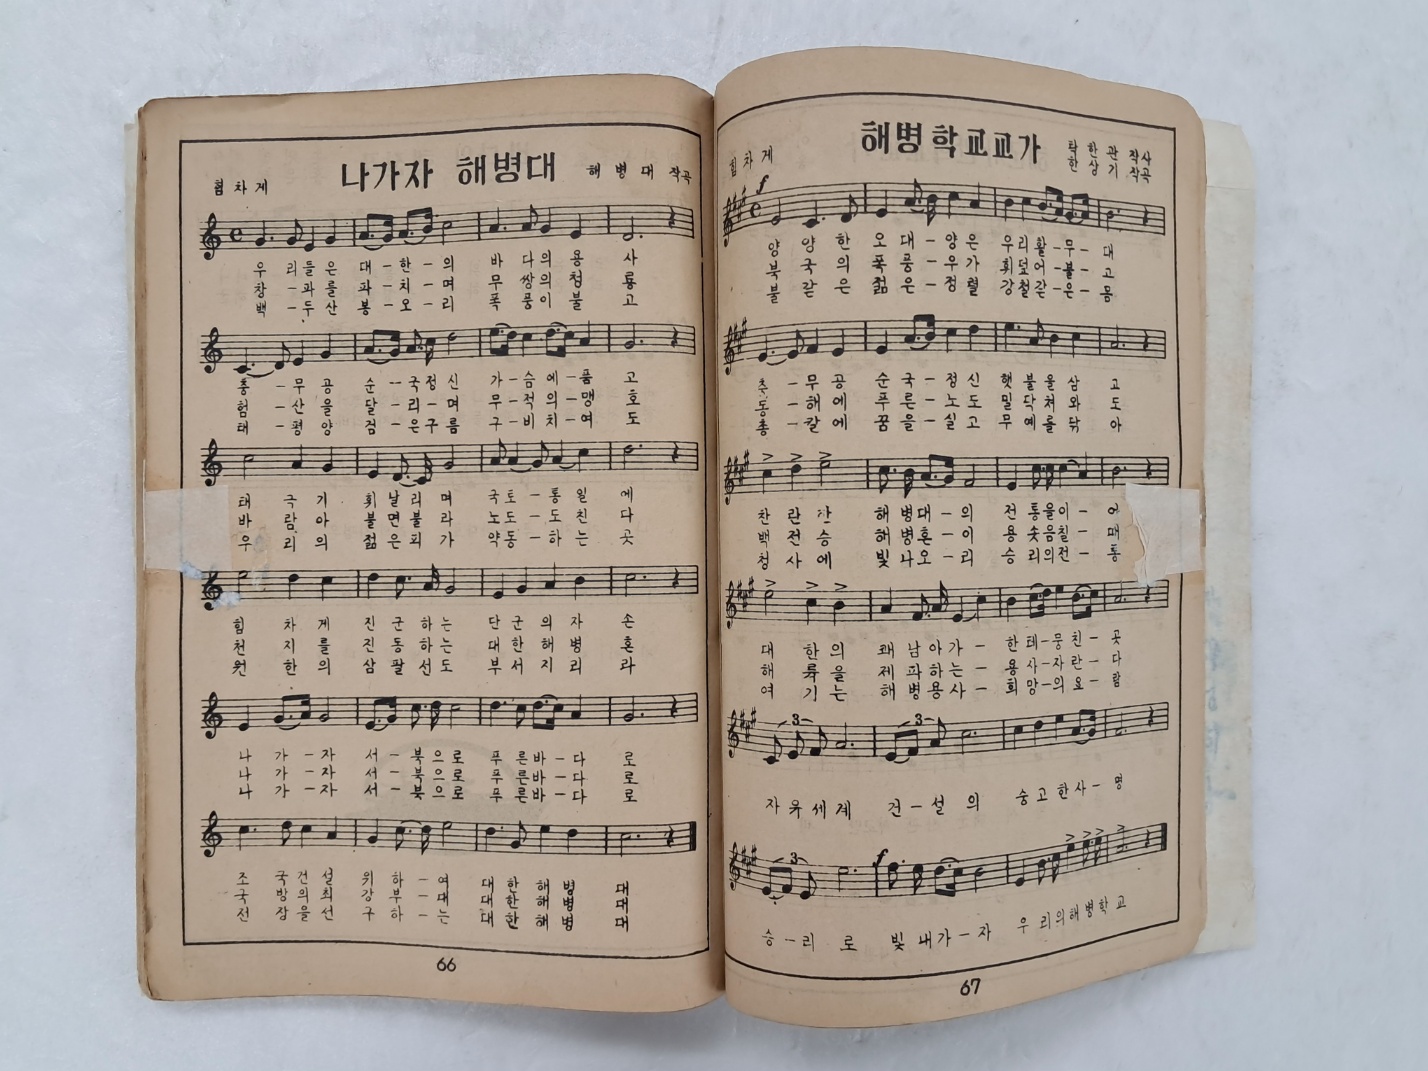 나가자 해병대
힘차게
해병대 작곡
우 리들은 대-한-의 바 다의 용 사
창 -파를 파-치-며 무 쌍의 청 룡
백 -두산 봉-오-리 폭 풍이 불 고
충 -무공 순--국정신 가-슴에-품 고
험 -산을 달-리-며 무-적의-맹 호
태 -평양 점-은구름 구-비치-여 도
태 극 기 휘날리 며 국토-통일 에
바 람 아 불면불 라 노도-도친 다
우 리 의 젊은피 가 약동-하는 곳
힘 차 게 진군하는 단군의자 손
천 지 를 진동하는 대한해병 혼
원 한 의 삼팔선도 부서지리 라
나 가-자 서-북으로 푸른바-다 로
나 가-자 서-북으로 푸른바-다 로
나 가-자 서-북으로 푸른바-다 로
조 국건설 위하-여 대한해병 대
국 방의최 강부-대 대한해병 대
전 장을선 구하-는 대한해병 대
66
해병학교교가
힘차게
탁한관 작사
한상기 작곡
양 양 한 오대-양은 우리활-무-대
북 국 의 폭풍-우가 휘덮어-불-고
불 같 은 젊은-정렬 강철같-은-몸
충 -무공 순국-정신 햇불을삼 고
동 -해에 푸른-노도 밀닥쳐와 도
총 -칼에 꿈을-실고 무예를닦 아
찬 란 한 해병대-의 전통을이-어
백 전 승 해병혼-이 용솟음칠-때
청 사 에 빛나오-리 승리의전-통
대 한의 쾌남아가- 한테-뭉친-곳
해 륙을 제파하는- 용사-자란-다
여 기는 해병용사- 희망-의요-람
자유세계 건-설의 숭고한사-명
승-리로 빛내가-자 우리의해병학교
67